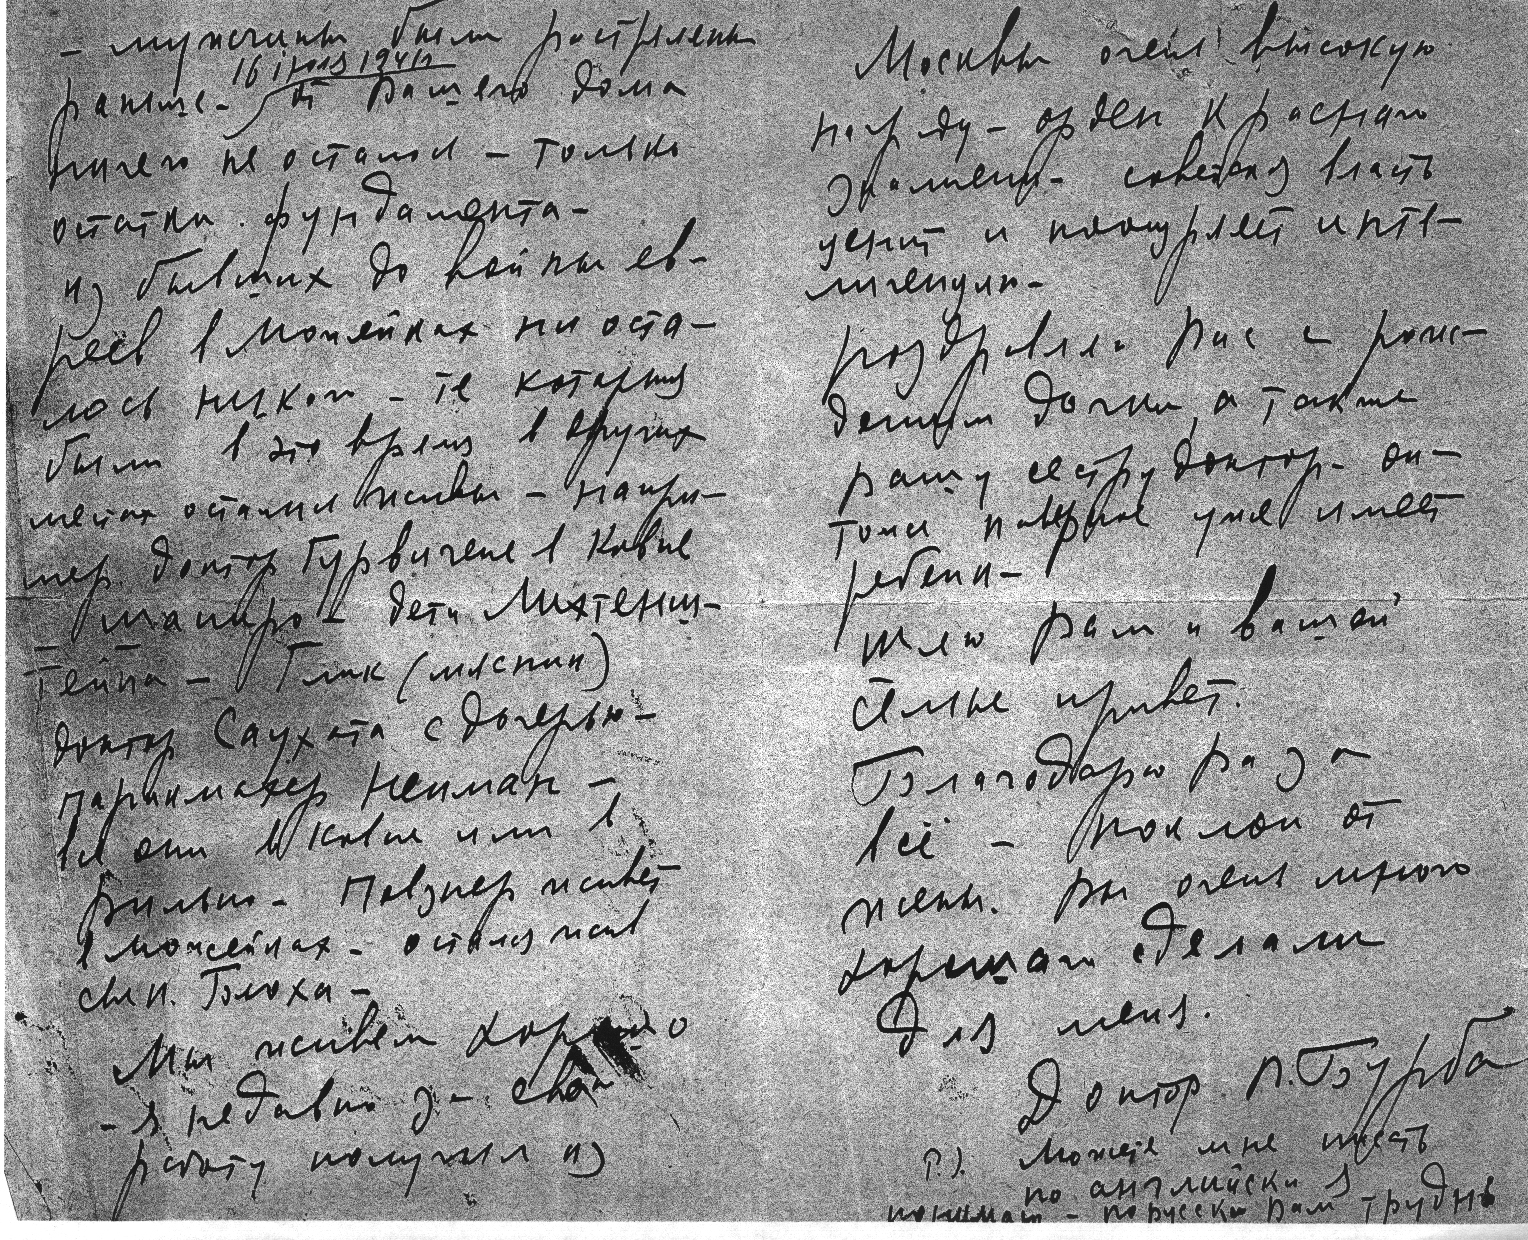 - мужчины были растрелены
16 июля 1941
раньше - От Вашего дома
ничего не остался - только
остатки фундамента -
из бывших до войны ев-
реев в Можейках ни оста-
лось никого - те которыя
были в это время в других
местах остались живы - напри-
мер. доктор Гурвичене в Ковне
- Шапиро - дети Лихтенш-
тейна - Глик (мясник)
доктор Саухата с дочерью -
парикмахер Нейман -
все они в Ковне или в
Вильно - Певзнер живет
в можейках - остался жив
сын. Блоха -
Мы живем хорошо
- я недавно за свою
работу получил из
Москвы очень высокую
награду - орден Краснаго
знамени - советская власть
ценит и поощряет инте-
лигенцию -
Поздравляю Вас с рож-
дением дочки, а также
Вашу сестру доктор - он-
тоже наверное уже имеет
ребенка -
Шлю Вам и вашей
семье привет.
Благодарю Вас за
всё - поклон от
жены. Вы очень много
хорошаго сделали
для меня.
Доктор Л. Бурба
P.S. Можете мне писать
по английски я
понимаю - по русски Вам трудно